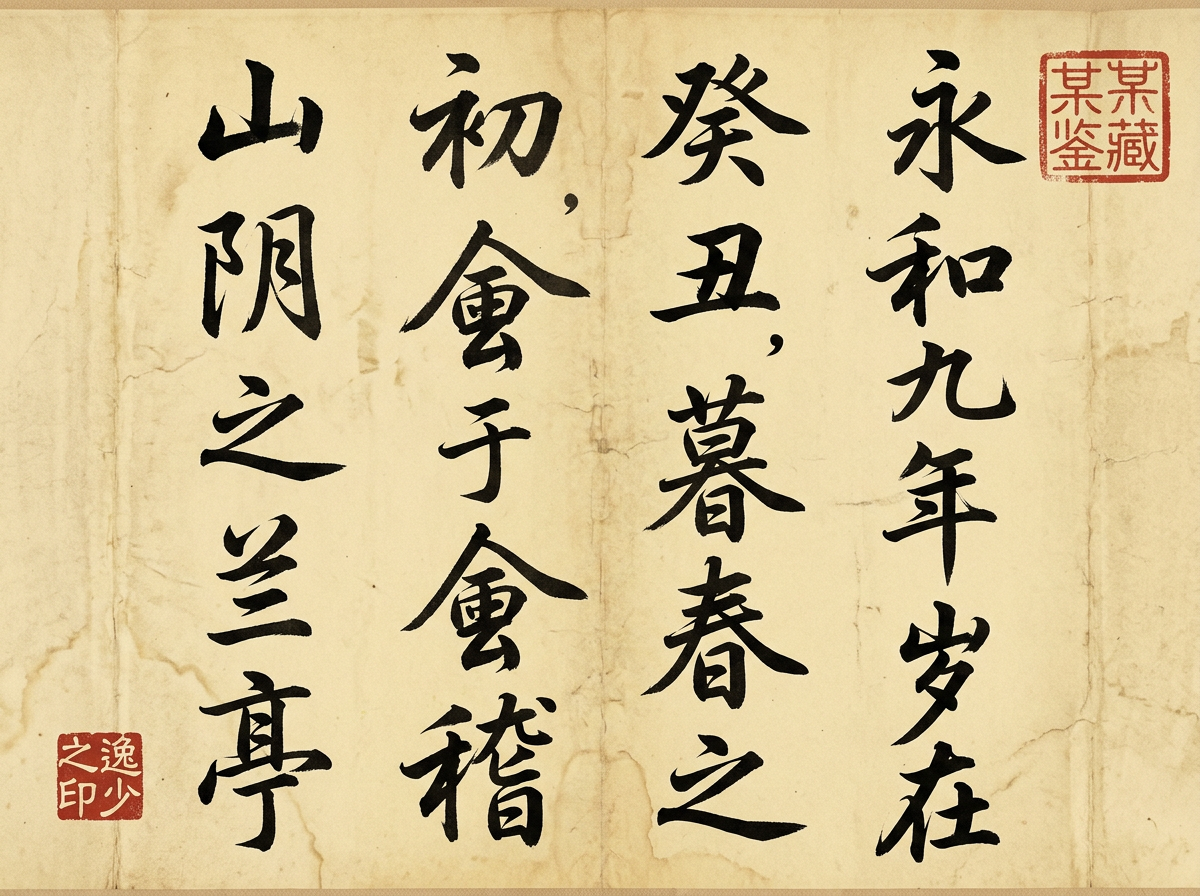 某藏
某鉴
永和九年岁在
癸丑，暮春之
初，會于會稽
山阴之兰亭
逸少
之印